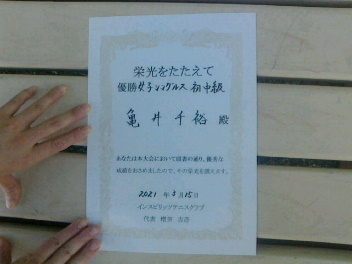 栄光をたたえて
優勝 女子シングルス 初中級
亀井千裕 殿
あなたは本大会において頭書の通り、優秀な
成績をおさめましたので、その栄光を讃えます。
2021 年 8 月 15日
インスピリッツテニスクラブ
代表